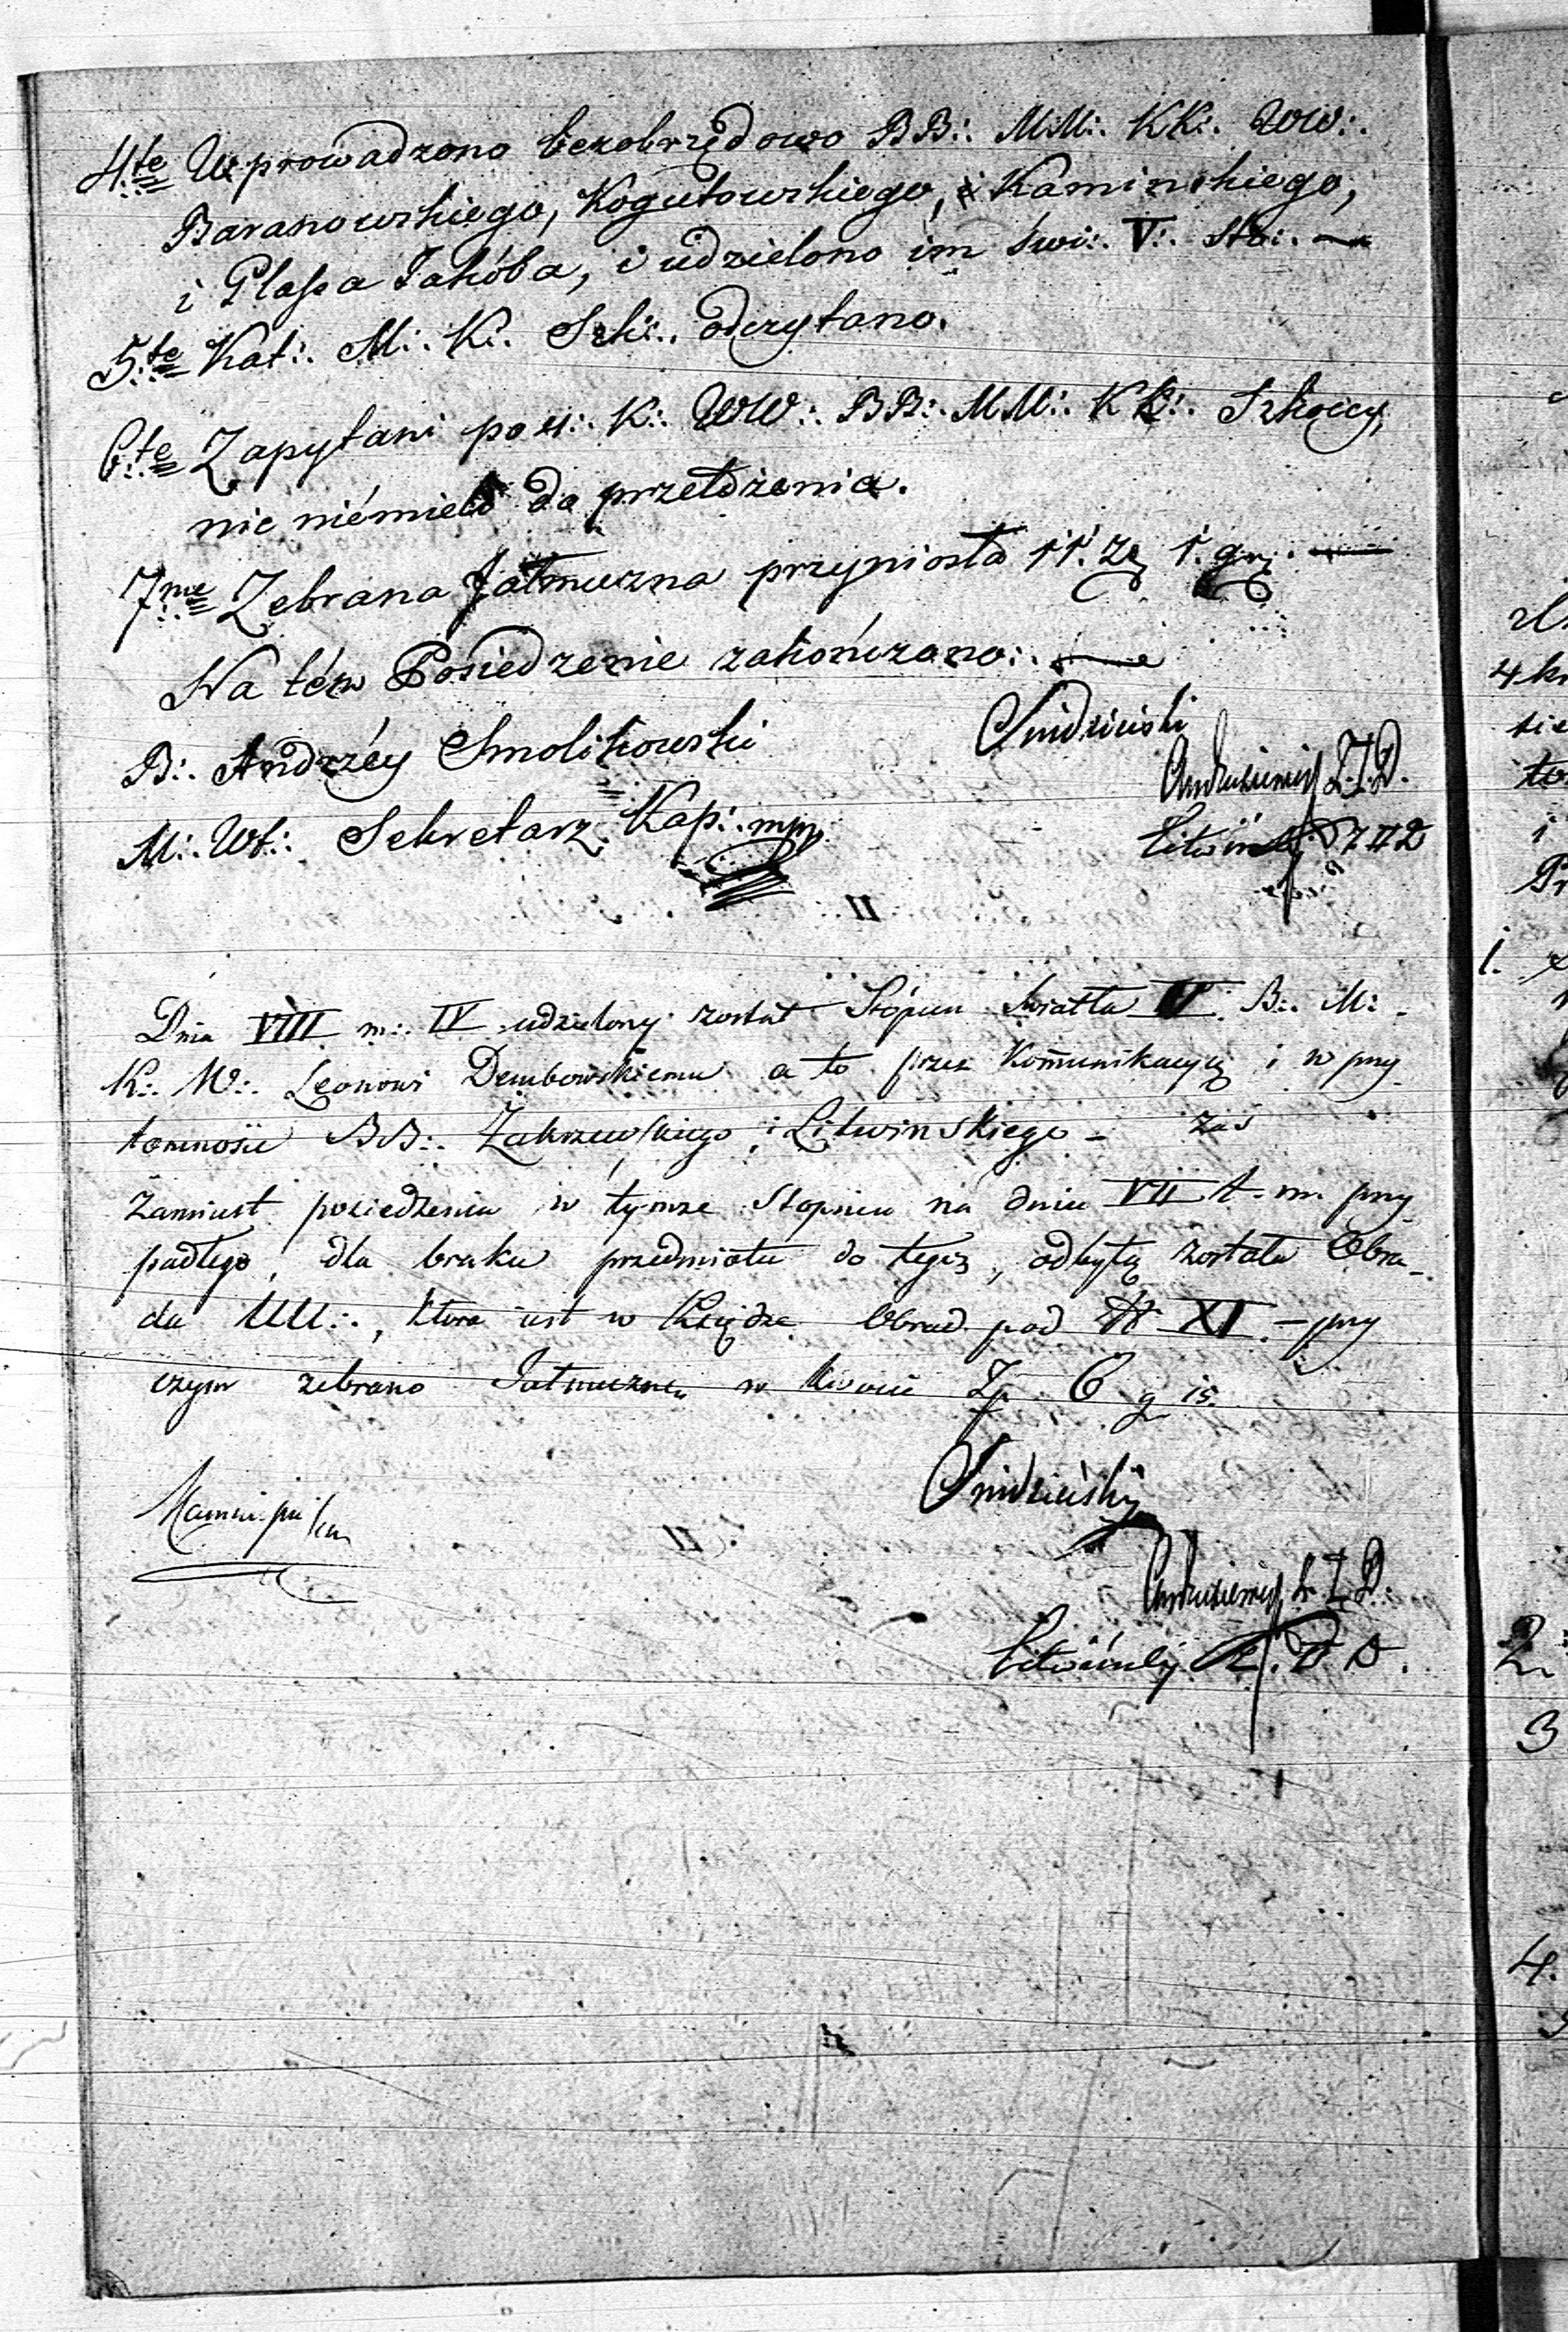 4:te Wprowadzono bezobrzędowo BB:. MM:. KK:. WW:.
Baranowskiego, Kogutowskiego, Kaminskiego,
i Glassa Jakóba, i udzielono im świ:. V:. Sto:.
5:te Kat:. M:. K:. Szk:. odczytano.
6:te Zapytani po K:. WW:. BB:. MM:. KK:. Szkoccy,
nic niémieli do przełożenia.
7:me Zebrana Jałmużna przyniosła 11. Zł 1. gr.
Na tém Posiedzenie zakończono:.
B:. Andrzéy Smolikowski
M:. Wł:. Sekretarz Kap:. mp
Litwiński
Dnia VIII m:. IV udzielony został Stópień Swiatła B:. M:
K:. W:. Leonowi Dembowskiemu a to przez Kom̃unikacyą i w przy
tomności BB:. Zakrzewskiego, i Litwinskiego - zaś
Zamiast posiedzenia w tymże Stopniu na dniu VII t. m. przy
padłego, dla braku przedmiotu do tegoż, odbytą została Obra-
da UU:., która jest w Księdze Obrad pod N XI. - przy
czym zebrano Jałmużnę w kwocie Zp. 6 g 15.
Litwiński
2
3
4.